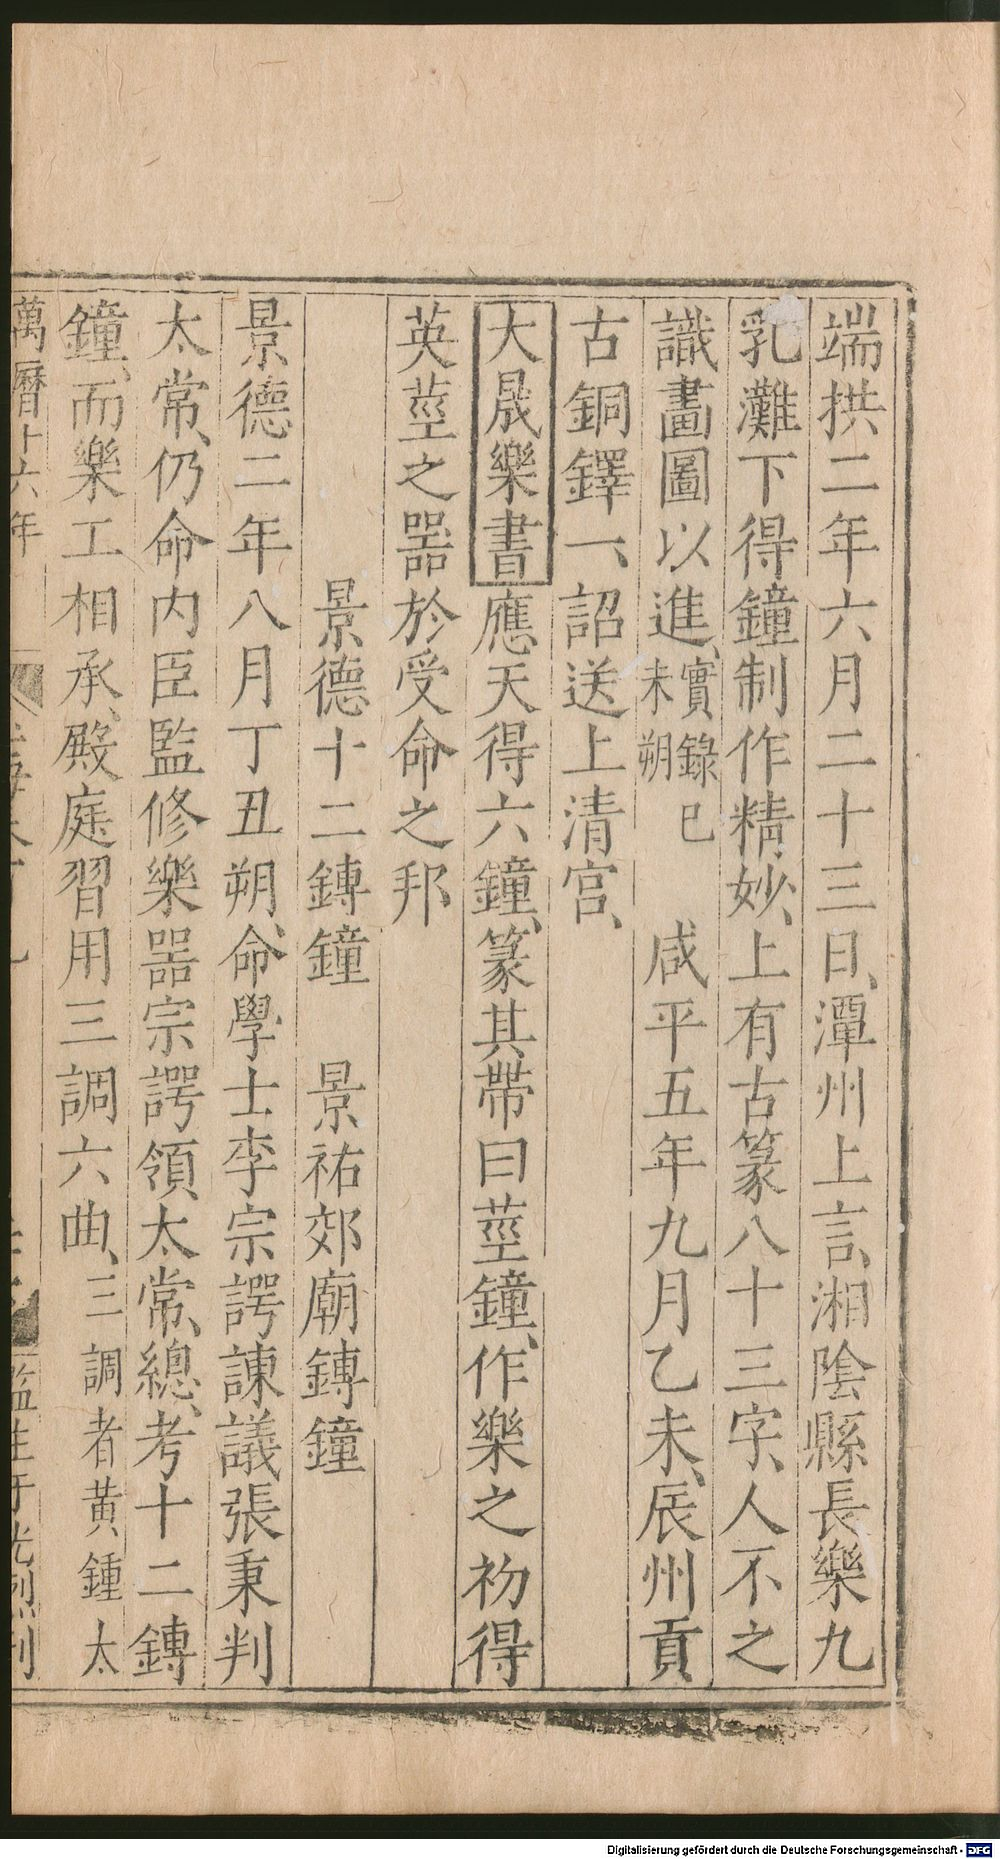 端拱二年六月二十三日、潭州上言、湘陰縣長樂九
乳灘下得鐘制作精妙、上有古篆八十三字、人不之
識畫圖以進、實錄己未朔 咸平五年九月乙未、辰州貢
古銅鐸一、詔送上清宮、
大晟樂書應天得六鐘、篆其帶曰莖鐘、作樂之初得
英莖之器於受命之邦
景德十二鎛鐘 景祐郊廟鎛鐘
景德二年八月丁丑朔、命學士李宗諤諫議張秉判
太常、仍命内臣監修樂器宗諤領太常、總、考十二鎛
鐘、而樂工相承、殿庭習用三調六曲、三調者黃鍾太
萬曆十六年 監生于光烈刊
Digitalisierung gefördert durch die Deutsche Forschungsgemeinschaft - DFG